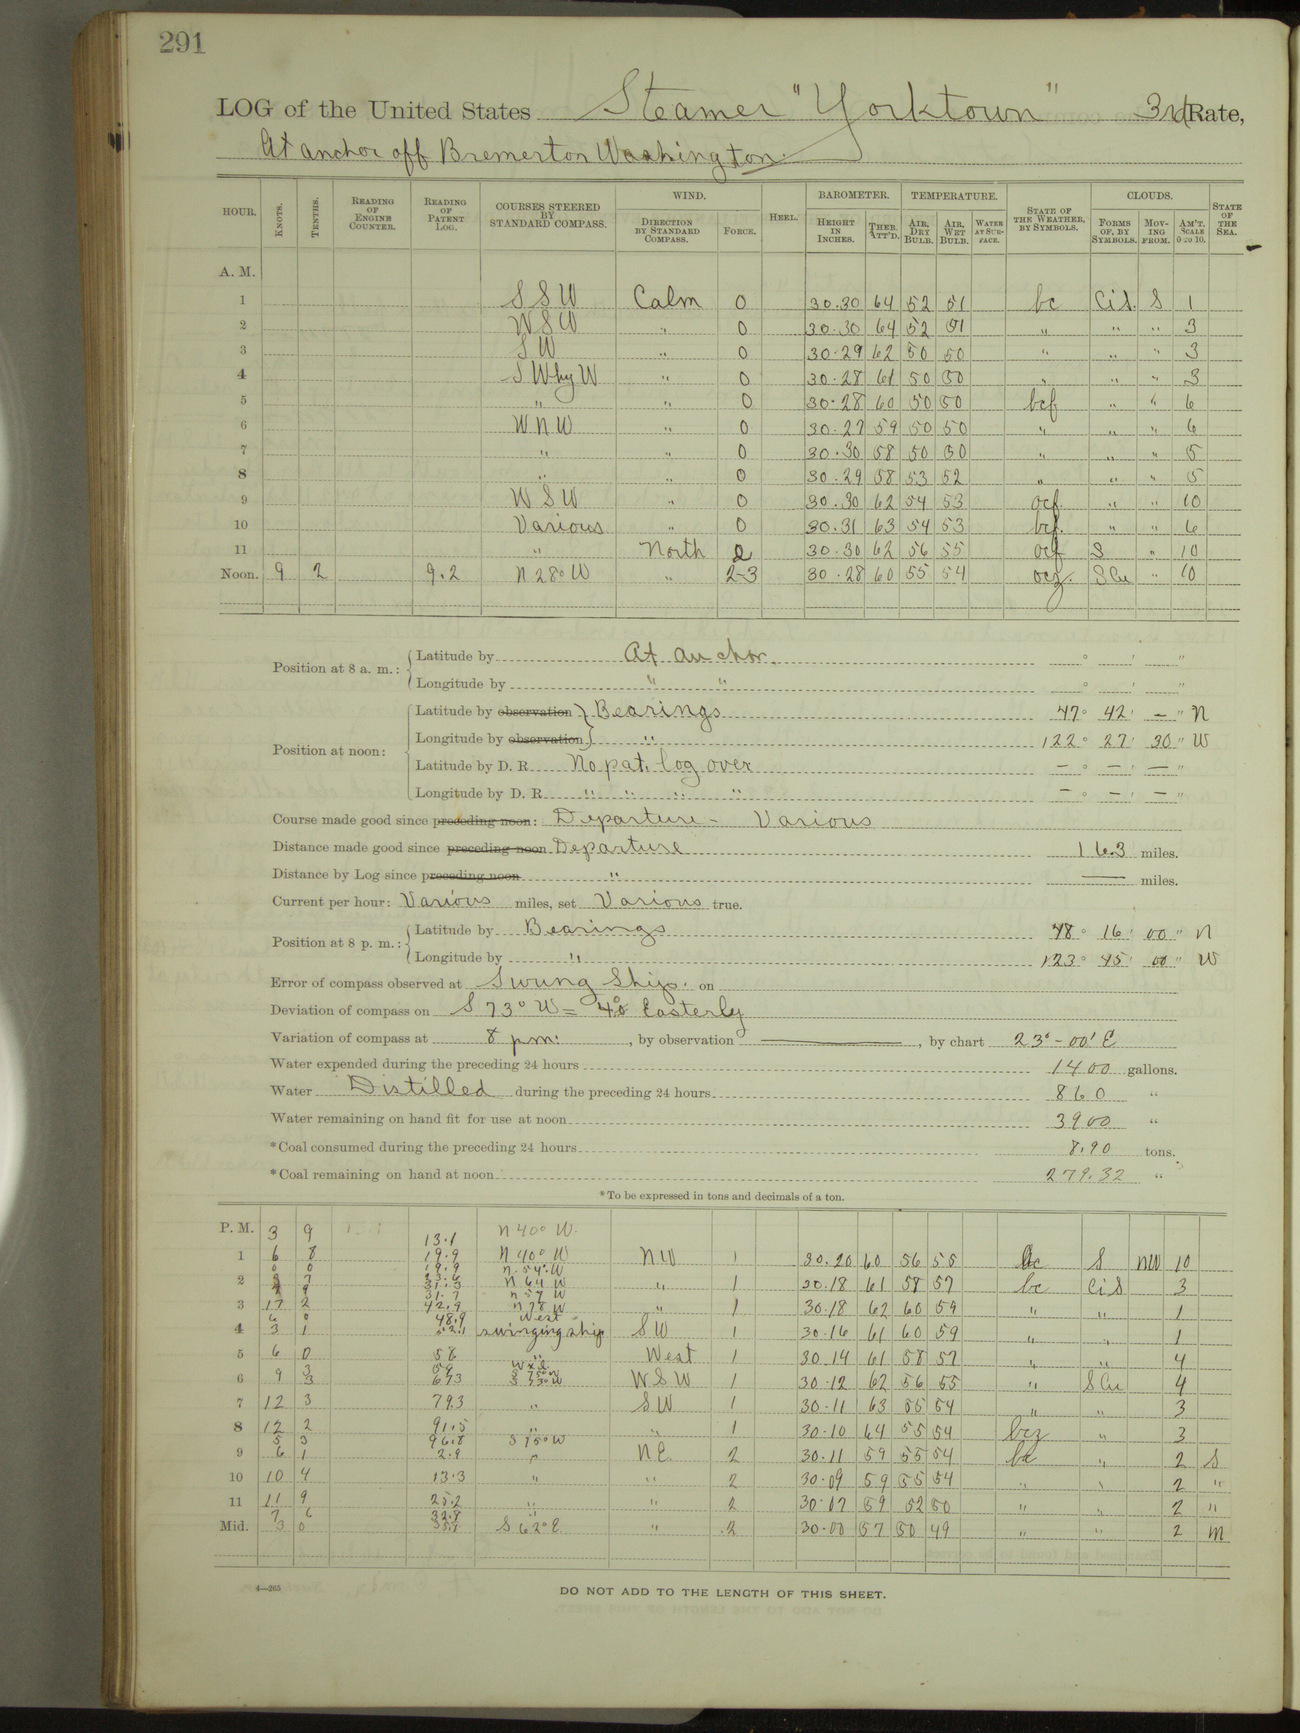 291
LOG of the United States Steamer "Yorktown" 3rd Rate,
At anchor off Bremerton Washington.
HOUR. KNOTS. TENTHS. READING OF ENGINE COUNTER. READING OF PATENT LOG. COURSES STEERED BY STANDARD COMPASS. WIND. DIRECTION BY STANDARD COMPASS. FORCE. HEEL. BAROMETER. HEIGHT IN INCHES. THER. ATT'D. TEMPERATURE. AIR, DRY BULB. AIR, WET BULB. WATER AT SURFACE. STATE OF THE WEATHER, BY SYMBOLS. CLOUDS. FORMS OF, BY SYMBOLS. MOVING FROM. AM'T. SCALE 0 TO 10. STATE OF THE SEA.
A. M.
1 S S W Calm 0 30.30 64 52 51 bc CiS. S 1
2 W S W " 0 30.30 64 52 51 " " " 3
3 S W " 0 30.29 62 50 50 " " " 3
4 S W by W " 0 30.28 61 50 50 " " " 3
5 " " 0 30.28 60 50 50 bcf " " 6
6 W N W " 0 30.27 59 50 50 " " " 6
7 " " 0 30.30 58 50 50 " " " 5
8 " " 0 30.29 58 53 52 " " " 5
9 W S W " 0 30.30 62 54 53 ocf " " 10
10 Various " 0 30.31 63 54 53 bcf. " " 6
11 " North 2 30.30 62 56 55 ocf S " 10
Noon. 9 2 9.2 N 28° W " 2-3 30.28 60 55 54 ocz. SCu " 10
Position at 8 a. m.: Latitude by At anchor. ° ' "
Longitude by " " ° ' "
Position at noon: Latitude by observation Bearings 47° 42' — " N
Longitude by observation " 122° 27' 30" W
Latitude by D. R. No pat. log over — ° — ' — "
Longitude by D. R. " " " " — ° — ' — "
Course made good since preceding noon: Departure - Various
Distance made good since preceding noon Departure 16.3 miles.
Distance by Log since preceding noon " — miles.
Current per hour: Various miles, set Various true.
Position at 8 p. m.: Latitude by Bearings 48° 16' 00" N
Longitude by " 123° 45' 00" W
Error of compass observed at Swung Ship. on
Deviation of compass on S 73° W = 4° Easterly
Variation of compass at 8 pm. , by observation — , by chart 23° - 00' E
Water expended during the preceding 24 hours 1400 gallons.
Water Distilled during the preceding 24 hours 860 "
Water remaining on hand fit for use at noon 3900 "
*Coal consumed during the preceding 24 hours 8.90 tons.
*Coal remaining on hand at noon 279.32 "
*To be expressed in tons and decimals of a ton.
P. M. 3 9 13.1 N 40° W.
1 6 8 19.9 N 40° W NW 1 30.20 60 56 55 S NW 10
2 N 64 W " 1 30.18 61 58 57 bc CiS 3
3 17 2 42.9 N 78 W " 1 30.18 62 60 59 " " 1
6 0 48.9 West
4 3 1 52.1 swinging ship SW 1 30.16 61 60 59 " " 1
5 6 0 58 " West 1 30.14 61 58 57 " " 4
6 9 3 67.3 S 73° W W S W 1 30.12 62 56 55 " SCu 4
7 12 3 79.3 " SW 1 30.11 63 55 54 " " 3
8 12 2 91.5 " " 1 30.10 64 55 54 bcz " 3
5 3 96.8 S 75° W
9 6 1 2.9 " NE. 2 30.11 59 55 54 bc " 2 S
10 10 4 13.3 " " 2 30.09 59 55 54 " " 2 "
11 11 9 25.2 " " 2 30.07 59 52 50 " " 2 "
7 6 32.8 "
Mid. 3 0 S 62° E. " 2 30.00 57 50 49 " " 2 M
4—265
DO NOT ADD TO THE LENGTH OF THIS SHEET.